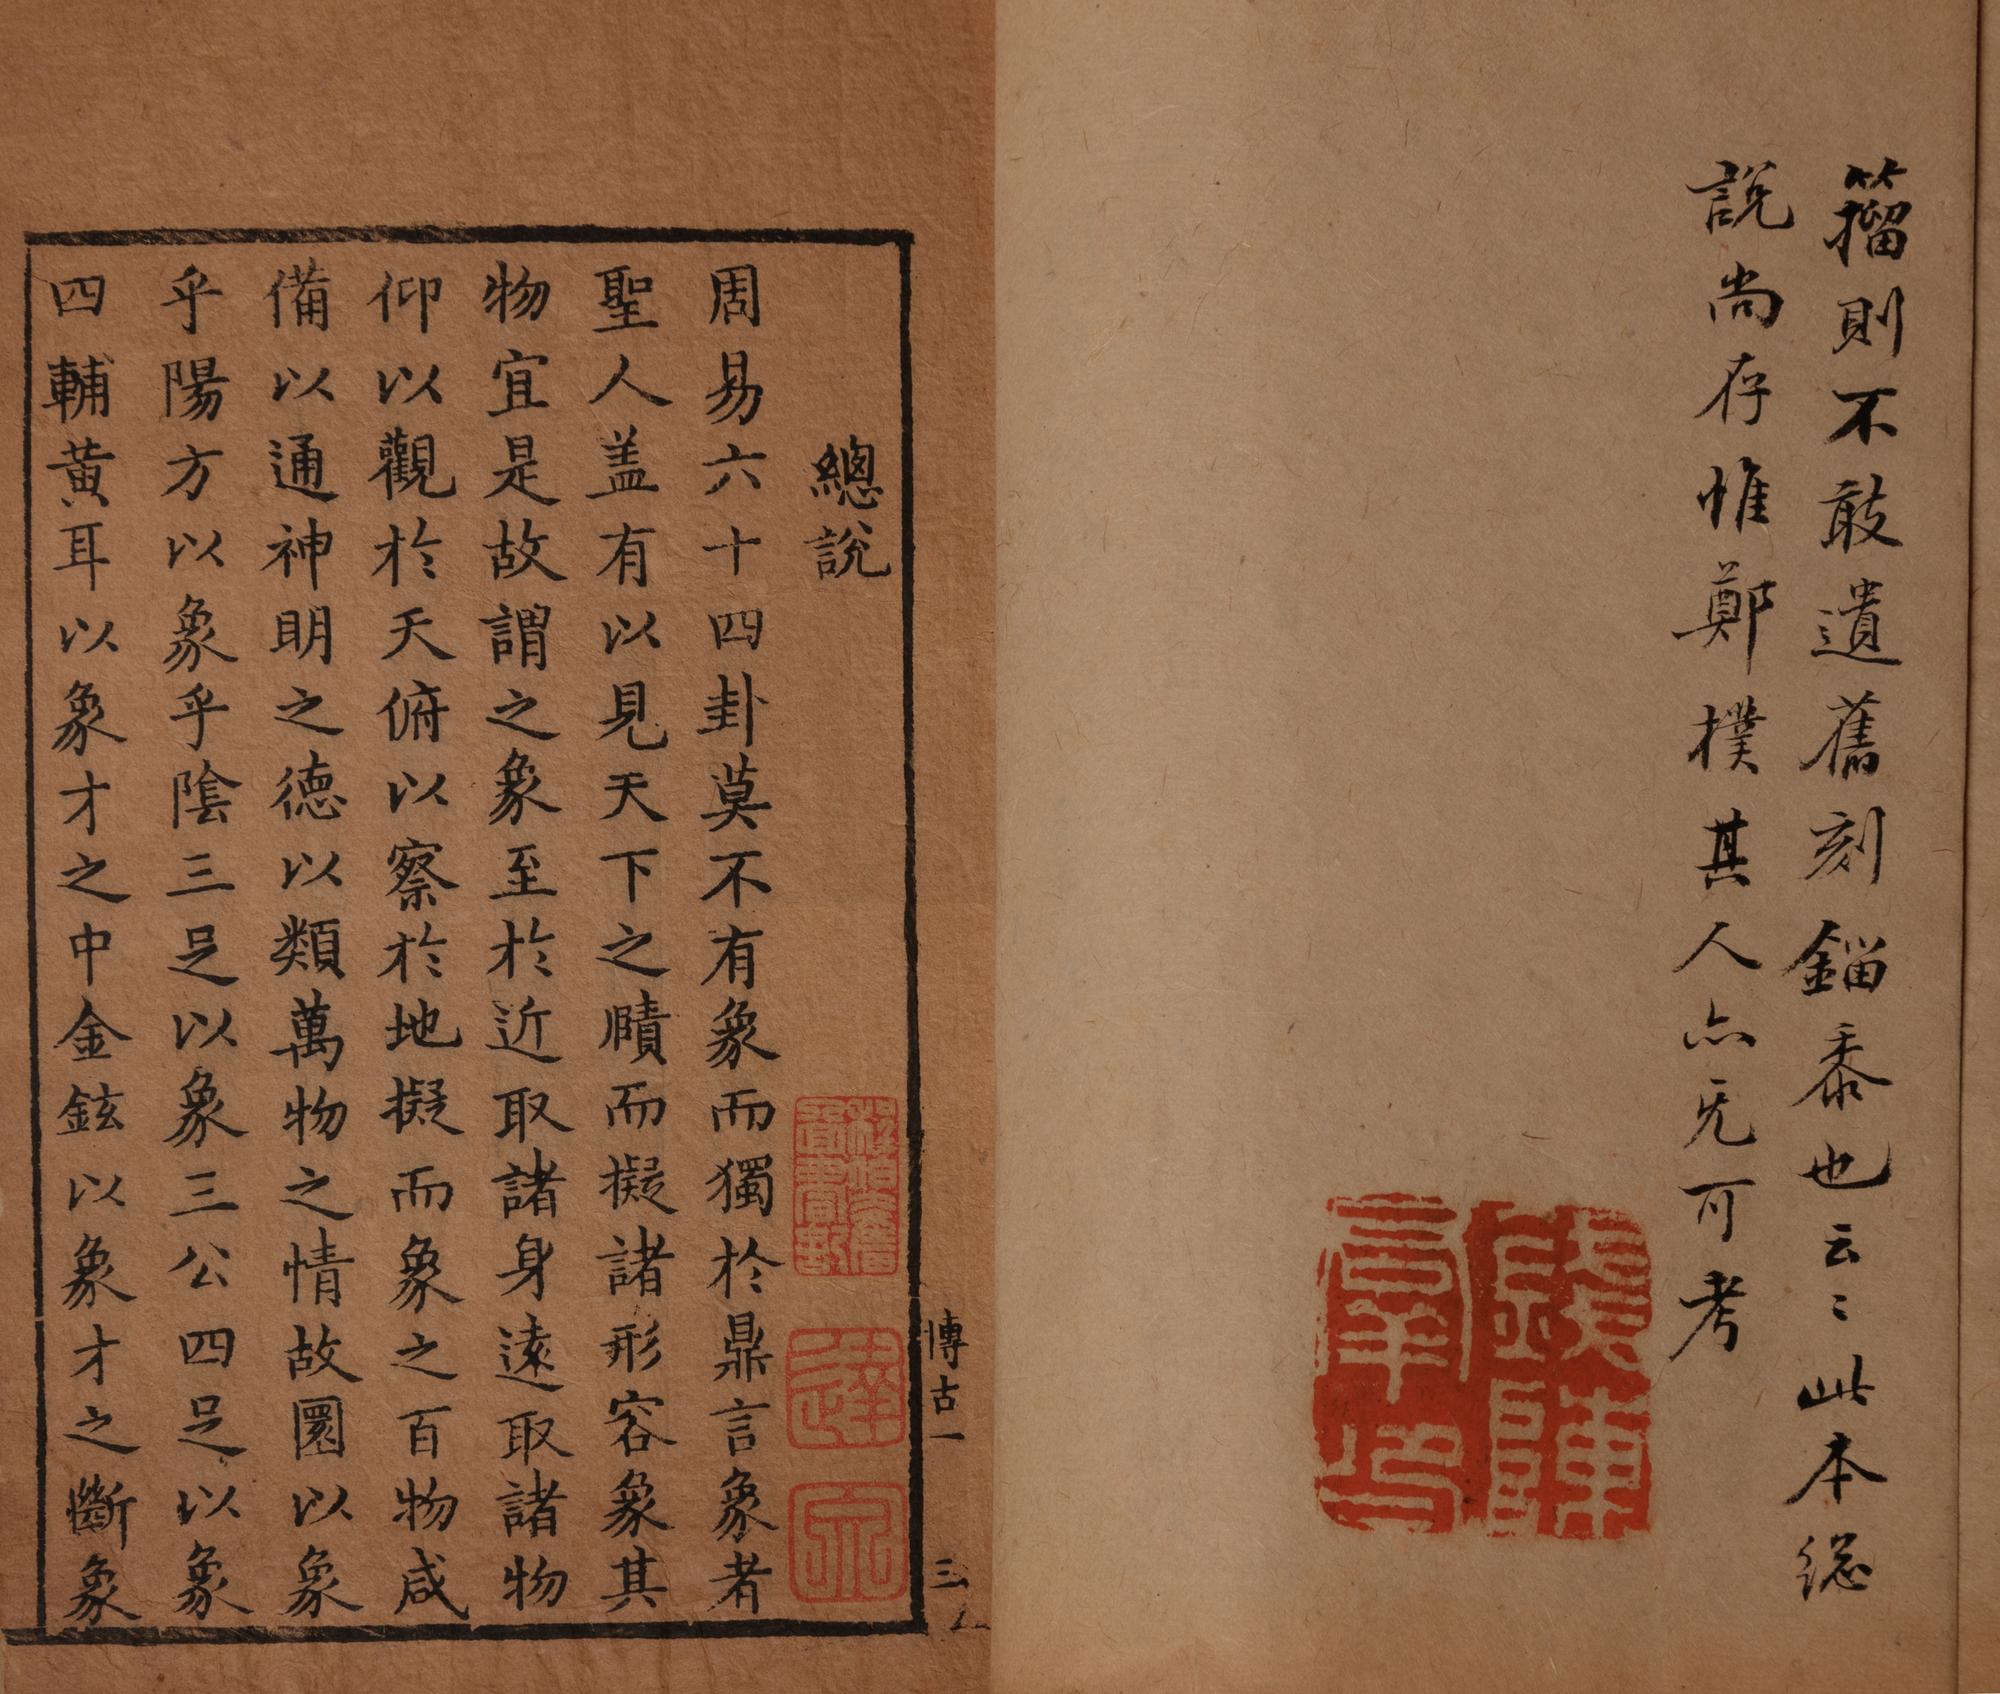 籀則不敢遺舊刻錙黍也云〻此本緫
說尚存惟鄭樸其人亦无可考
總說
周易六十四卦莫不有象而獨於鼎言象者
聖人盖有以見天下之賾而擬諸形容象其
物宜是故謂之象至於近取諸身遠取諸物
仰以觀於天俯以察於地擬而象之百物咸
備以通神明之德以類萬物之情故圜以象
乎陽方以象乎陰三足以象三公四足以象
四輔黃耳以象才之中金鉉以象才之斷象
博古一
三